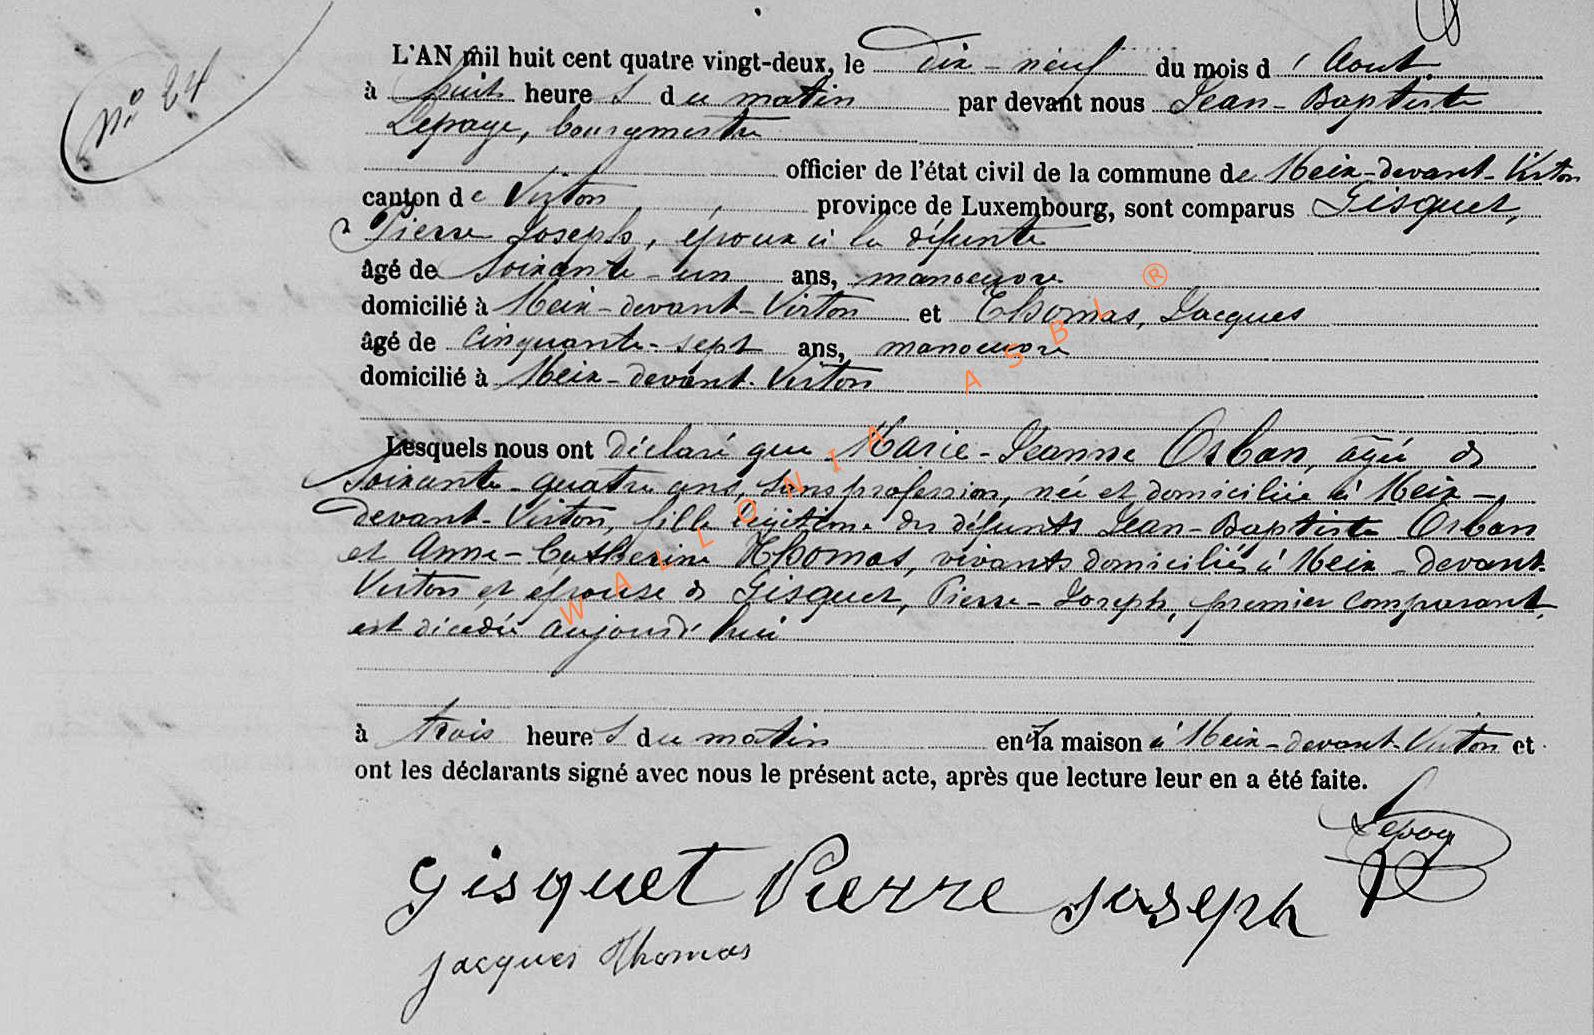 N° 24
L'AN mil huit cent quatre vingt-deux, le dix-neuf du mois d'Aout
à huit heures du matin par devant nous Jean-Baptiste
Lepage, bourgmestre
officier de l'état civil de la commune de Meix-devant-Virton
canton de Virton, province de Luxembourg, sont comparus Gisquet,
Pierre Joseph, époux à la défunte
âgé de soixante-un ans, manoeuvre
domicilié à Meix-devant-Virton et Thomas, Jacques
âgé de cinquante-sept ans, manoeuvre
domicilié à Meix-devant-Virton
Lesquels nous ont déclaré que Marie-Jeanne Orban, âgée de
soixante-quatre ans, sans profession, née et domiciliée à Meix-
devant-Virton, fille légitime des défunts Jean-Baptiste Orban
et Anne-Catherine Thomas, vivants domiciliés à Meix-devant-
Virton et épouse de Gisquet, Pierre-Joseph, premier comparant,
est décédée aujourd'hui
à trois heures du matin en sa maison à Meix-devant-Virton et
ont les déclarants signé avec nous le présent acte, après que lecture leur en a été faite.
Lepage
Gisquet Pierre Joseph
Jacques Thomas
WALLONIA ASBL ®